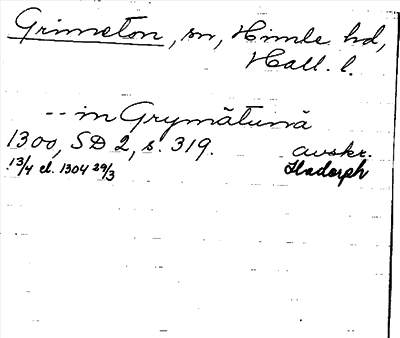 Grimeton, sn, Himle hd,
Hall. l.
-- in Grymātunā
1300, SD 2, s. 319. avskr.
13/4 el. 1304 29/3 Hadorph